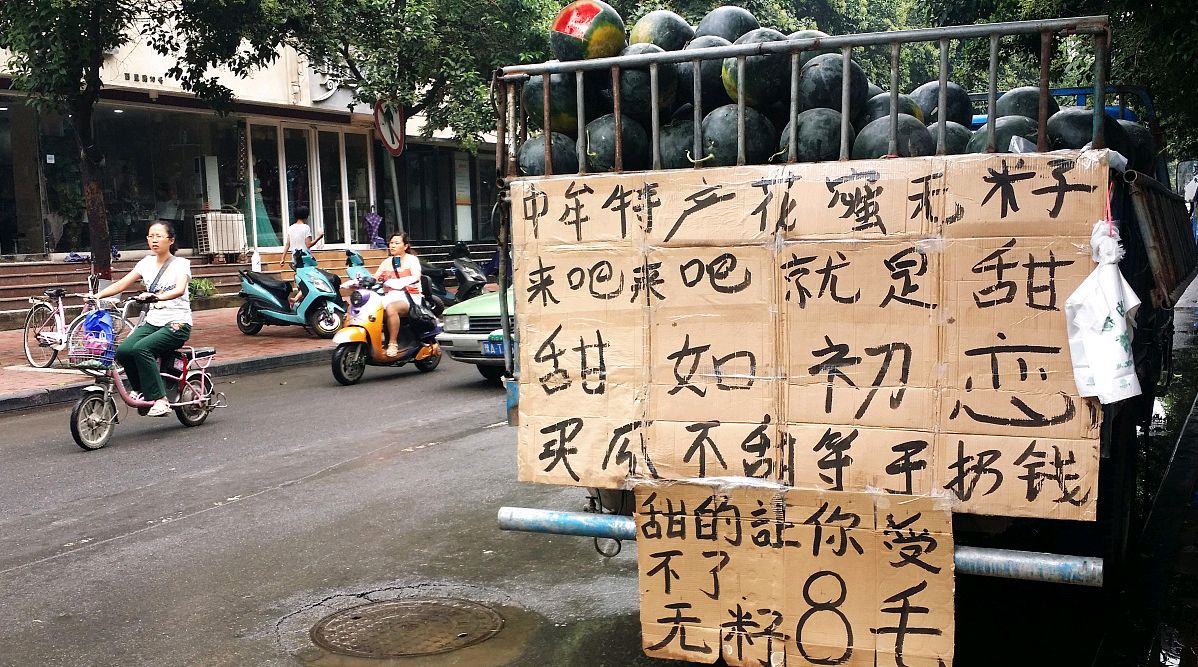 中牟特产花蜜无籽
来吧来吧就是甜
甜如初恋
买瓜不甜等于扔钱
甜的让你受
不了
无籽8毛